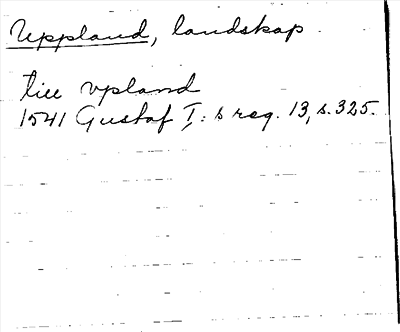 Uppland, landskap.
till vpland
1541 Gustaf I:s reg. 13, s. 325.